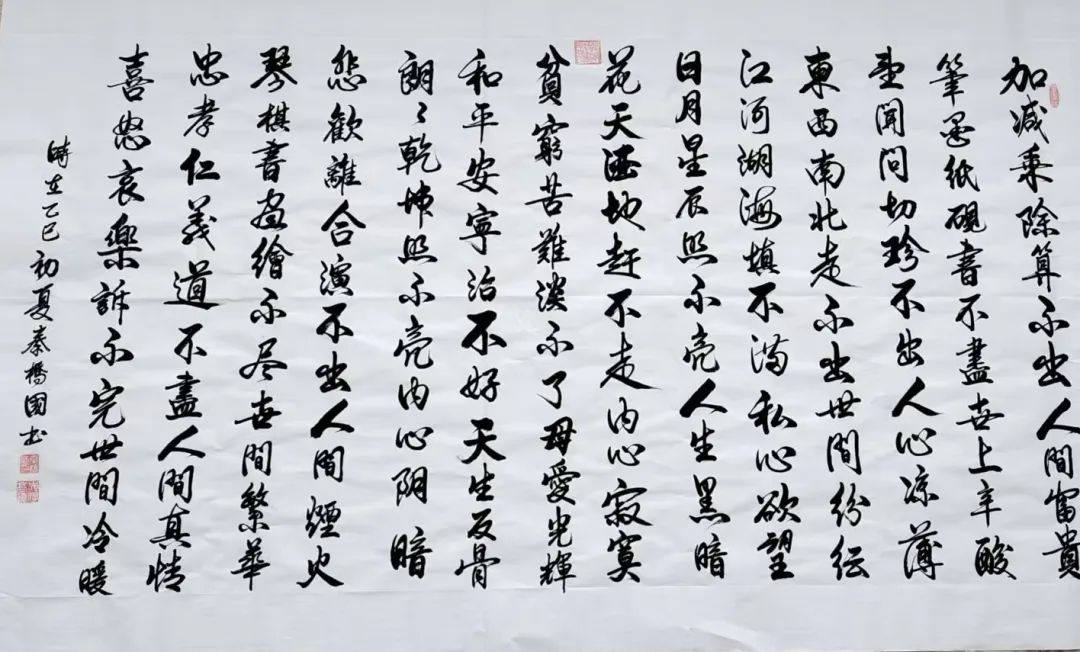 加減乘除算不出人間富貴
筆墨紙硯書不盡世上辛酸
望聞问切珍不出人心凉薄
東西南北走不出世間纷纭
江河湖海填不满私心欲望
日月星辰照不亮人生黑暗
花天酒地赶不走内心寂寞
貧窮苦難淡不了母愛光輝
和平安寧治不好天生反骨
朗〻乾坤照不亮内心阴暗
悲歡離合演不出人间煙火
琴棋書画繪不尽世間繁華
忠孝仁義道不盡人間真情
喜怒哀樂訴不完世間冷暖
時在乙巳初夏秦橋國书